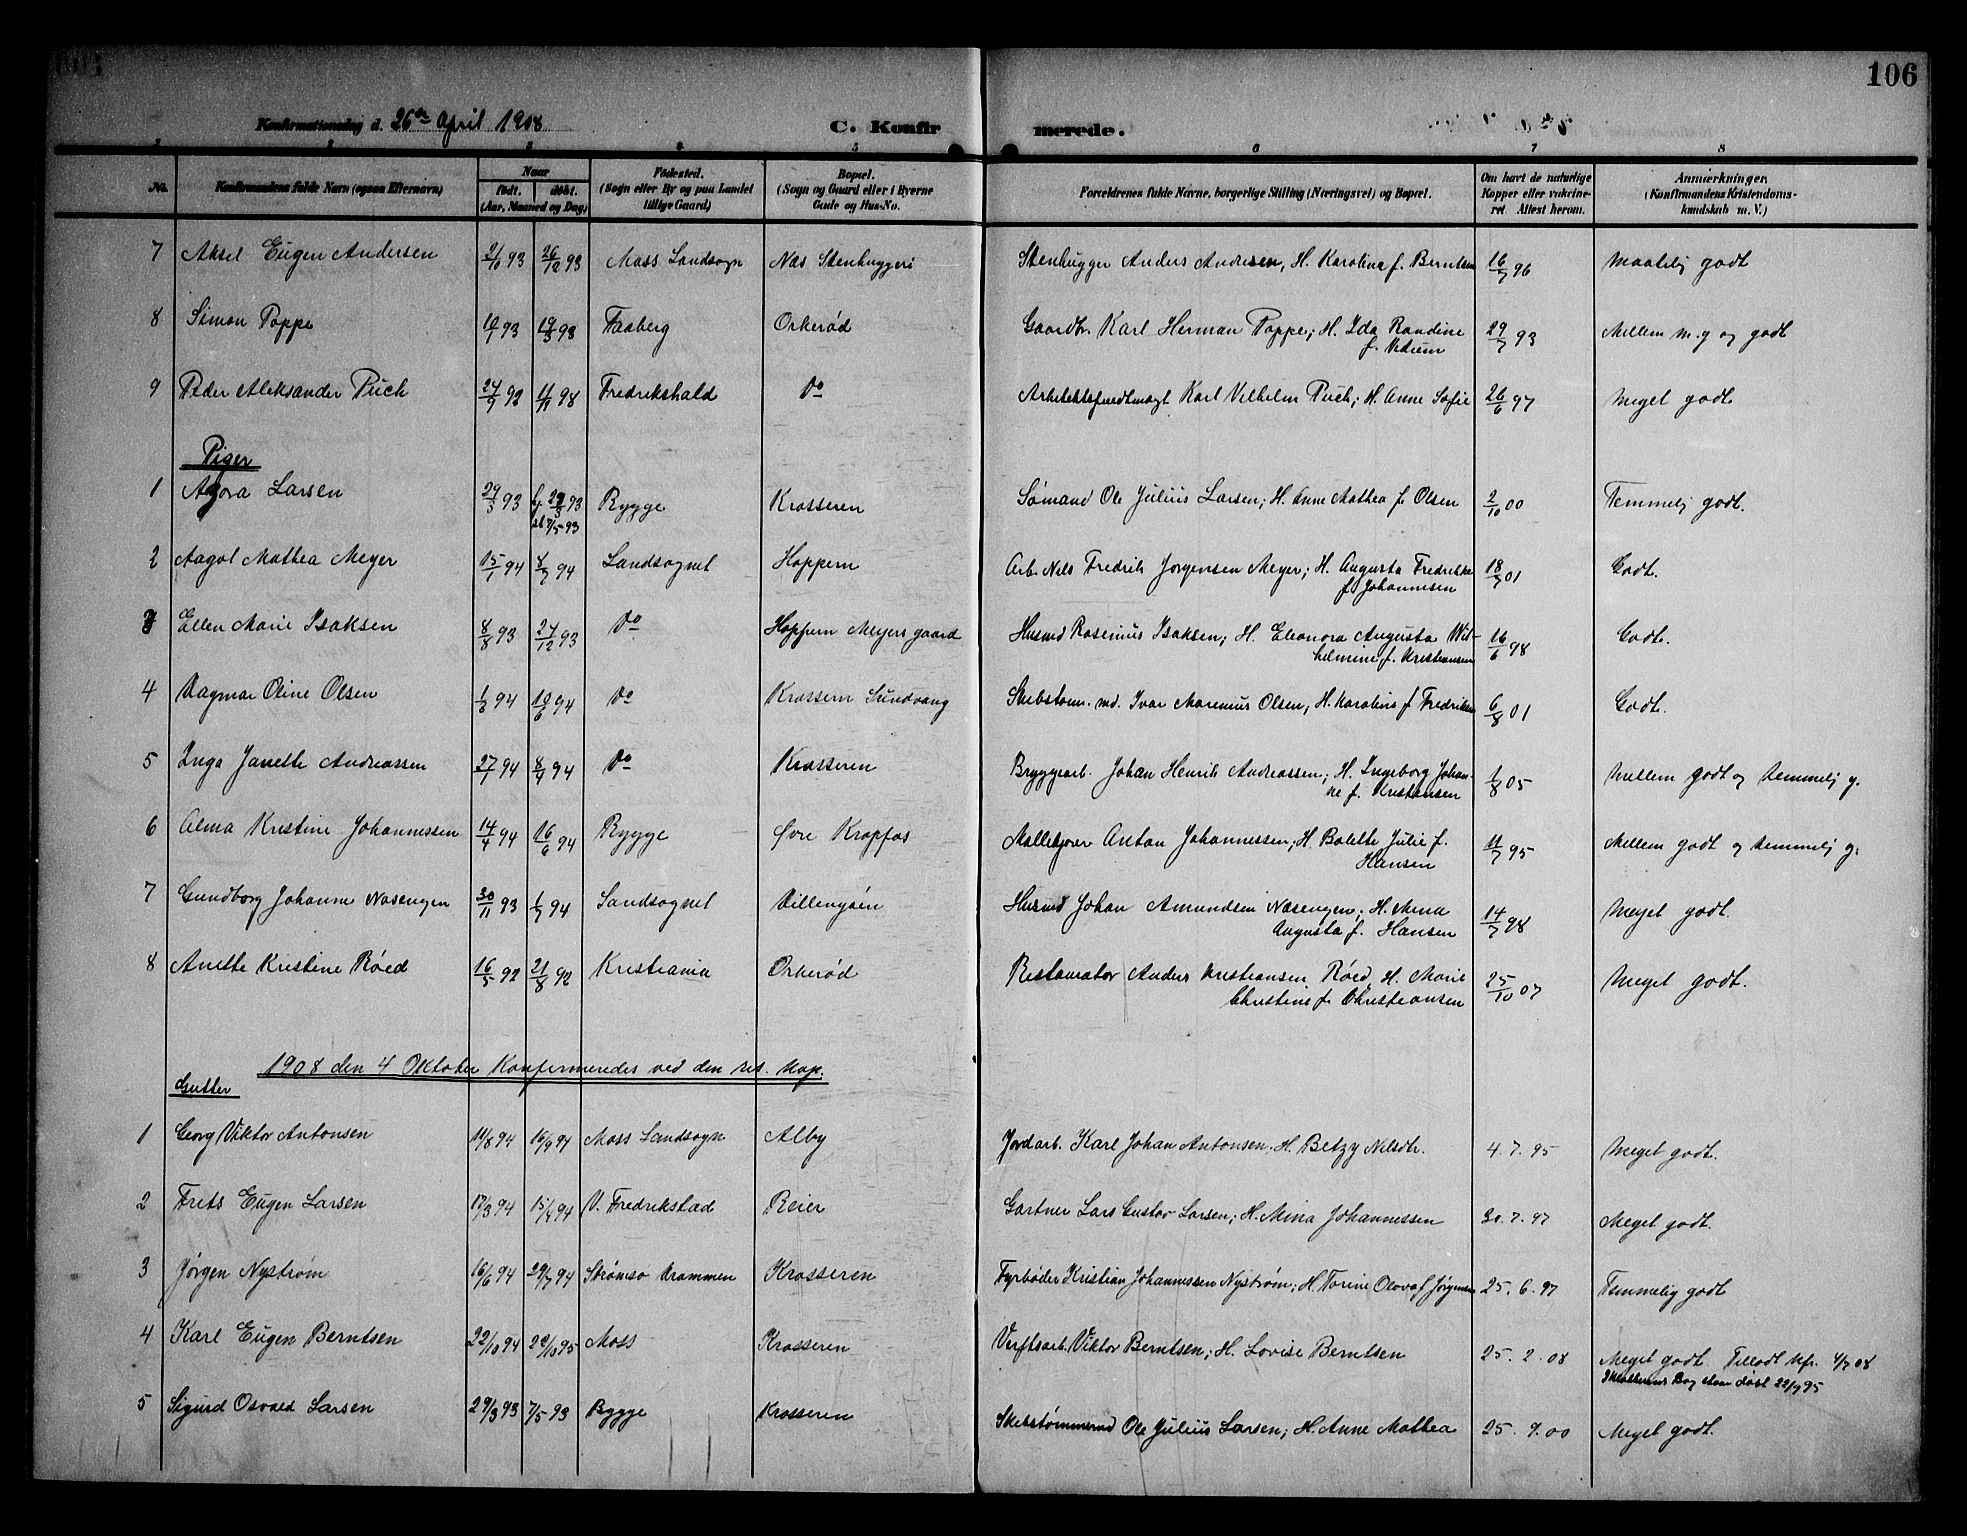 106
Konfirmationsdag d. 26de April 1908
C. Konfirmerede.
1 2 3 4 5 6 7 8
No. Konfirmandens fulde Navn (ogsaa Efternavn) Naar født. døbt. (Aar, Maaned og Dag) Fødested. (Sogn eller By og paa Landet tillige Gaard) Bopæl. (Sogn og Gaard eller i Byerne Gade og Hus-No. Forældrenes fulde Navne, borgerlige Stilling (Næringsvei) og Bopæl. Om havt de naturlige Kopper eller vakcineret Attest herom. Anmærkninger. (Konfirmandens Kristendomskundskab m. V.)
7 Aksel Eugen Andersen 2/10 93 26/12 93 Moss Landsogn Næs Stenhuggeri Stenhugger Anders Andersen, H. Karoline f. Berntsen 16/7 96 Maatelig godt
8 Simon Poppe 10/1 93 19/3 93 Faaberg Orkerød Gaardbr. Karl Herman Poppe; H. Ida Randine 29/7 93 Mellem m.g og godt
f. Vedum
9 Peder Aleksander Puch 24/9 92 11/11 98 Fredrikshald Do Arkitektsfuldmægt Karl Vilhelm Puch; H. Anne Sofie 26/6 97 Meget godt.
Piger
1 Agora Larsen 29/3 93 hj. 29/3 93 Rygge Krosseren Sømand Ole Julius Larsen; H. Anne Mathea f. Olsen 2/10 00 Temmelig godt.
st 7/5 93
2 Aagot Mathea Meyer 15/1 94 8/7 94 Landsognet Hoppern Arb. Nils Fredrik Jørgensen Meyer; H. Augusta Fredrikke 18/7 01 Godt.
f. Johannesen
3 Ellen Marie Isaksen 8/8 93 24/12 93 Do Hoppern Meyers gaard Husmd Rasmus Isaksen; H. Eleonora Augusta Wil- 16/6 98 Godt.
helmine f. Kristiansen
4 Dagmar Oline Olsen 1/3 94 10/6 94 Do Krossern Sundvang Skibstøm. md. Ivar Marenius Olsen; H. Karoline f Fredriksen 6/8 01 Godt.
5 Inga Janette Andreassen 27/1 94 8/4 94 Do Krosseren Bryggearb. Johan Henrik Andreassen; H. Ingeborg Johan- 1/8 05 Mellem godt og temmelig g.
ne f. Kristiansen
6 Alma Kristine Johannessen 14/4 94 16/6 94 Rygge Øvre Kropfos Møllekjører Anton Johannessen; H. Bolette Julie f. 11/7 95 Mellem godt og temmelig g.
Hansen
7 Gundborg Johanne Nosengen 30/11 93 1/7 94 Landsognet Dillengøen Husmd Johan Amundsen Næsengen; H. Mina 14/7 98 Meget godt.
Augusta f. Hansen
8 Anette Kristine Røed 16/5 92 21/8 92 Kristiania Orkerød Restaurator Anders Kristiansen Røed, H. Marie 25/10 07 Meget godt.
Christine f. Christiansen
1908 den 4 Oktober Konfirmeredes ved den res. Kap.
Gutter
1 Georg Viktor Antonsen 11/8 94 16/9 94 Moss Landsogn Alby Jordarb. Karl Johan Antonsen; H. Betzy Nilsdtr. 4. 7. 95 Meget godt.
2 Frits Eugen Larsen 17/3 94 15/4 94 V. Fredrikstad Reier Gartner Lars Gustav Larsen; H. Mina Johannessen 30. 7. 97 Meget godt.
3 Jørgen Nystrøm 16/6 94 29/7 94 Strømsø Drammen Krosseren Fyrbøder Kristian Johannessen Nystrøm; H. Torine Olava f Jørgensen 25. 6. 97 Temmelig godt
4 Karl Eugen Berntsen 22/10 94 20/10 95 Moss Krosseren Verftsarb. Viktor Berntsen; H. Lovise Berntsen 25. 2. 08 Meget godt. Tilladt Kfr. 4/7 08
døbt 22/9 95
5 Sigurd Osvald Larsen 29/3 93 7/5 93 Rygge Krosseren Skibstømmermd Ole Julius Larsen; H. Anne Mathea 25. 9. 00 Meget godt.